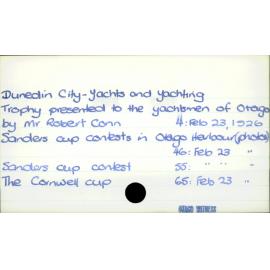 Dunedin City-Yachts and yachting
Trophy presented to the yachtsmen of Otago
by Mr Robert Conn 4: Feb 23, 1926
Sanders cup contests in Otago Harbour (photos)
46: Feb 23 "
Sanders cup contest 55: " " "
The Cornwell cup 65: Feb 23 "
OTAGO WITNESS